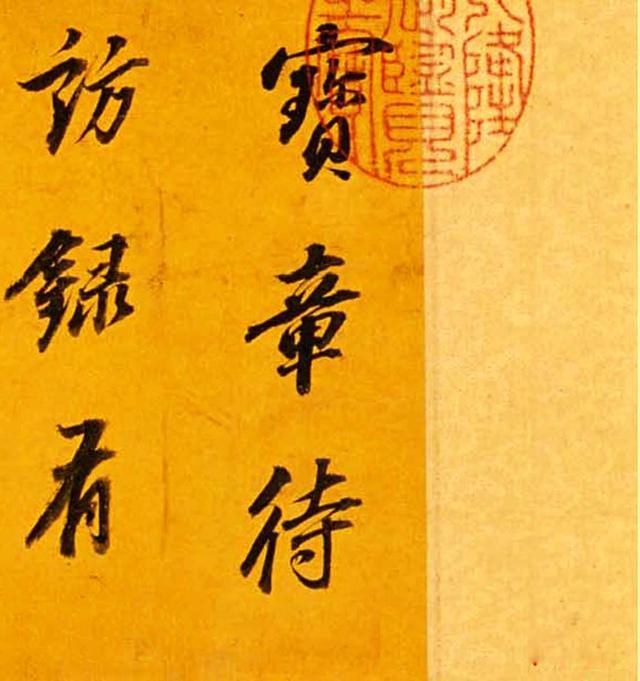 寶章待
訪録有